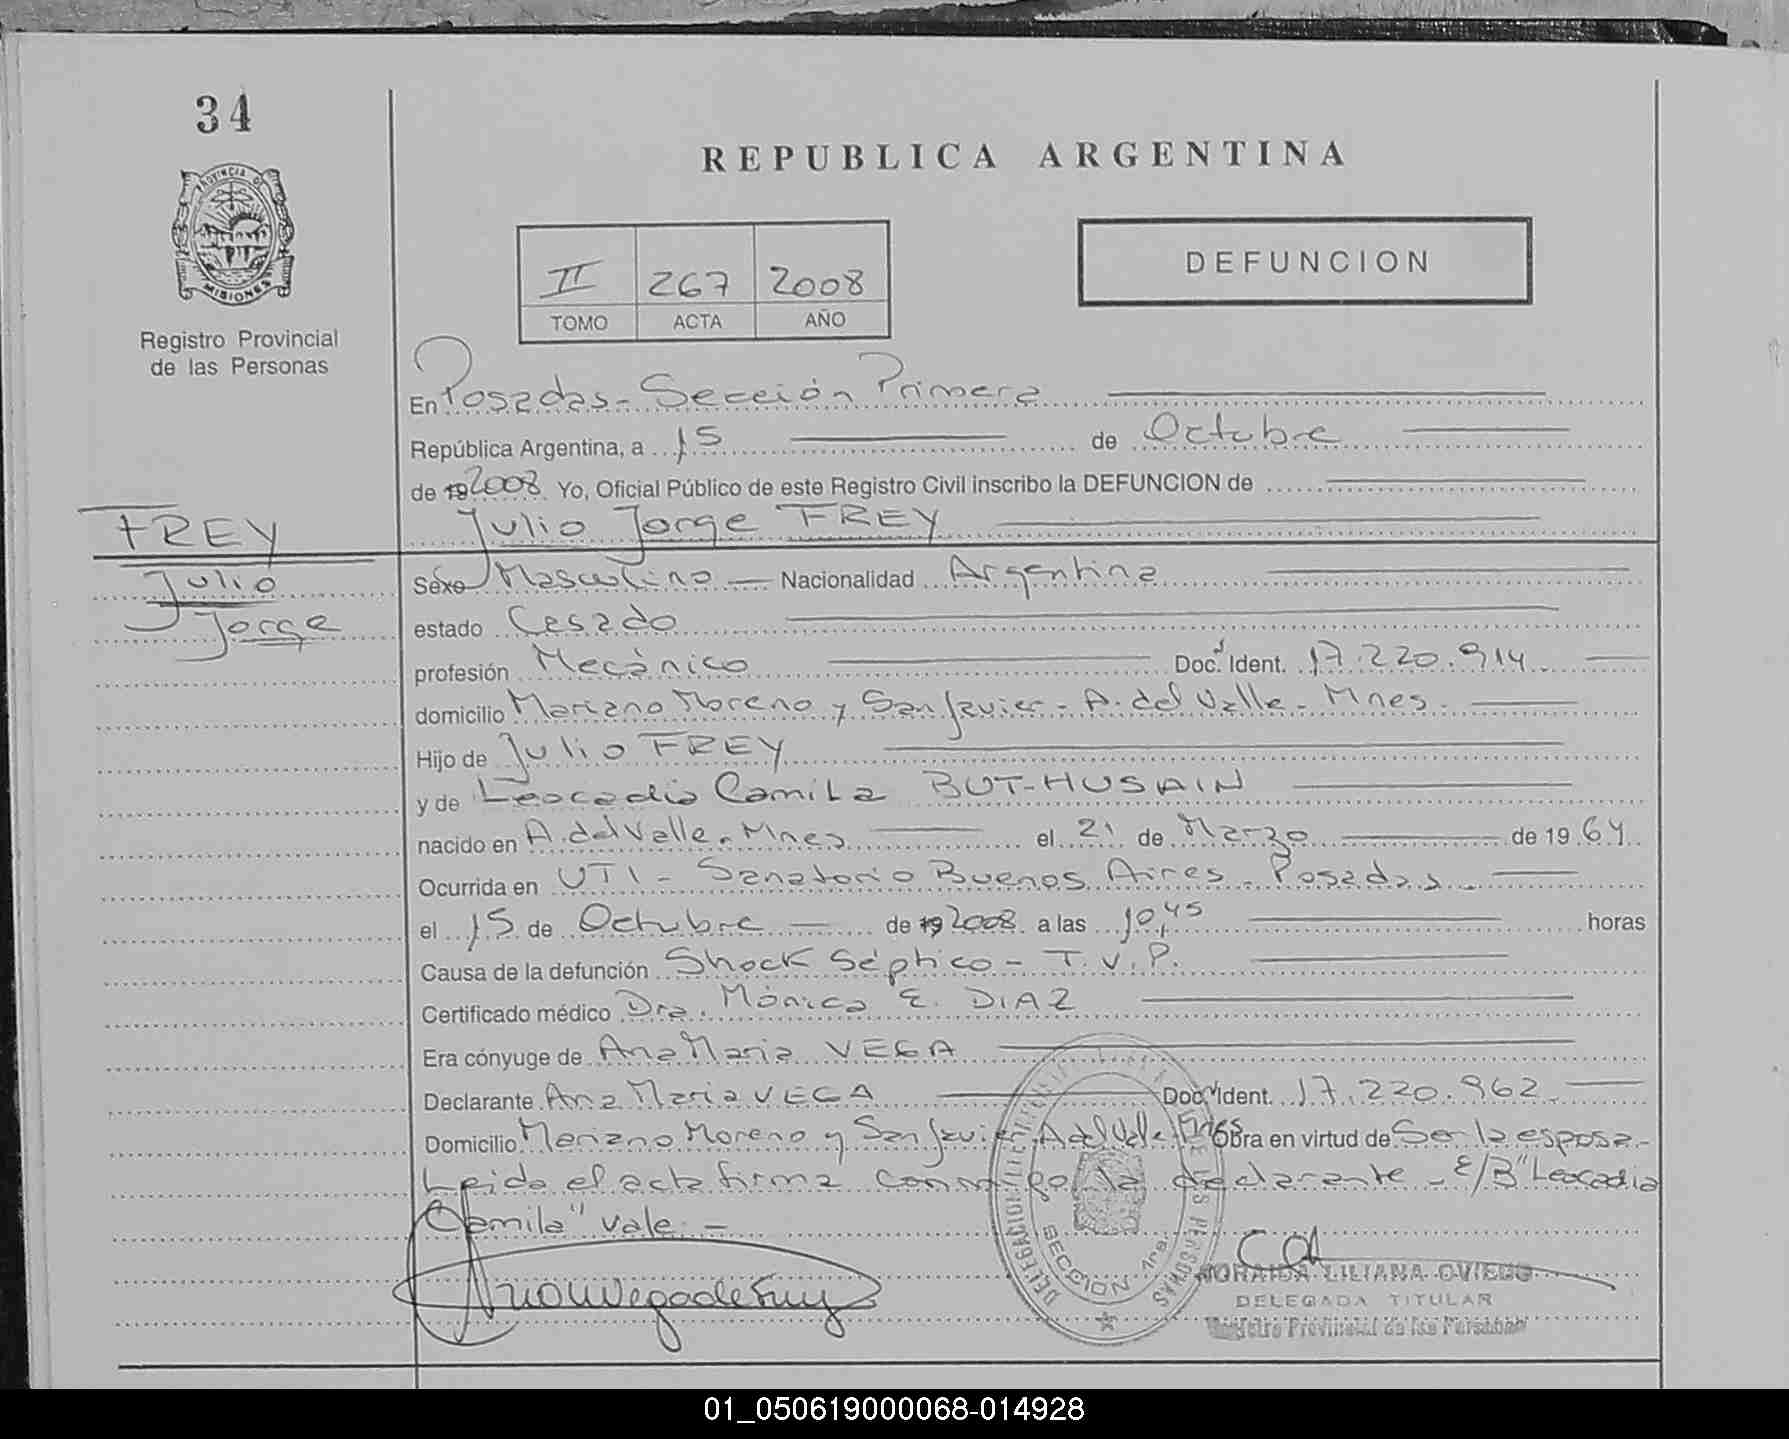 34
PROVINCIA DE
MISIONES
Registro Provincial
de las Personas
REPUBLICA ARGENTINA
II 267 2008
TOMO ACTA AÑO
DEFUNCION
En Posadas - Sección Primera
República Argentina, a 15 de Octubre
de 19 2008 Yo, Oficial Público de este Registro Civil inscribo la DEFUNCION de
Julio Jorge FREY
FREY
Julio
Jorge
Sexo Masculino — Nacionalidad Argentina
estado Casado
profesión Mecánico Doc. Ident. 17.220.914
domicilio Mariano Moreno y San Javier - A. del Valle - Mnes.
Hijo de Julio FREY
y de Leocadia Camila BUT-HUSAIN
nacido en A. del Valle - Mnes el 21 de Marzo de 19 64
Ocurrida en UTI - Sanatorio Buenos Aires - Posadas
el 15 de Octubre — de 19 2008 a las 10,45 horas
Causa de la defunción Shock Séptico - T.V.P.
Certificado médico Dra. Mónica E. DIAZ
Era cónyuge de Ana Maria VEGA
Declarante Ana Maria VEGA Doc. Ident. 17.220.962
Domicilio Mariano Moreno y San Javier A del Valle - Mnes Obra en virtud de Ser la esposa -
Leida el acta firma conmigo la declarante - E/B "Leocadia
Camila" vale. -
Ana M Vega de Frey
SECCION 1ra.
DELEGACION
DE LAS PERSONAS
NORAIDA LILIANA OVIEDO
DELEGADA TITULAR
Registro Provincial de las Personas
01_050619000068-014928